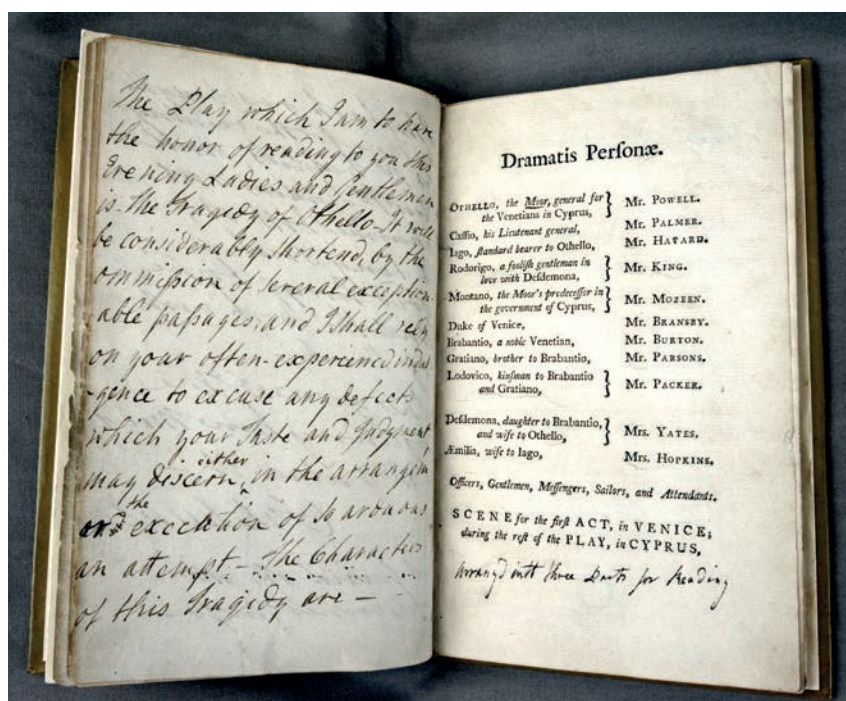 The Play which I am to have
the honor of reading to you this
Evening Ladies and Gentlemen
is - the Tragedy of Othello - It will
be considerably Shortend, by the
ommission of several exception
able paſsages, and I Shall rely
on your often-experienced indul
-gence to excuse any defects
which your Taste and Judgment,
may discern, either in the arrangem
or the execution of so arduous
an attempt - The Characters
of this Tragedy are -
Dramatis Perſonæ.
OTHELLO, the Moor, general for
the Venetians in Cyprus, } Mr. POWELL.
Caſſio, his Lieutenant general, Mr. PALMER.
Iago, ſtandard bearer to Othello, Mr. HAVARD.
Rodorigo, a fooliſh gentleman in
love with Deſdemona, } Mr. KING.
Montano, the Moor's predeceſſor in
the government of Cyprus, } Mr. MOZEEN.
Duke of Venice, Mr. BRANSBY.
Brabantio, a noble Venetian, Mr. BURTON.
Gratiano, brother to Brabantio, Mr. PARSONS.
Lodovico, kinſman to Brabantio
and Gratiano, } Mr. PACKER.
Deſdemona, daughter to Brabantio,
and wife to Othello, } Mrs. YATES.
Æmilia, wife to Iago, Mrs. HOPKINS.
Officers, Gentlemen, Meſſengers, Sailors, and Attendants.
SCENE for the firſt ACT, in VENICE;
during the reſt of the PLAY, in CYPRUS,
Arrang'd into three Parts for Reading